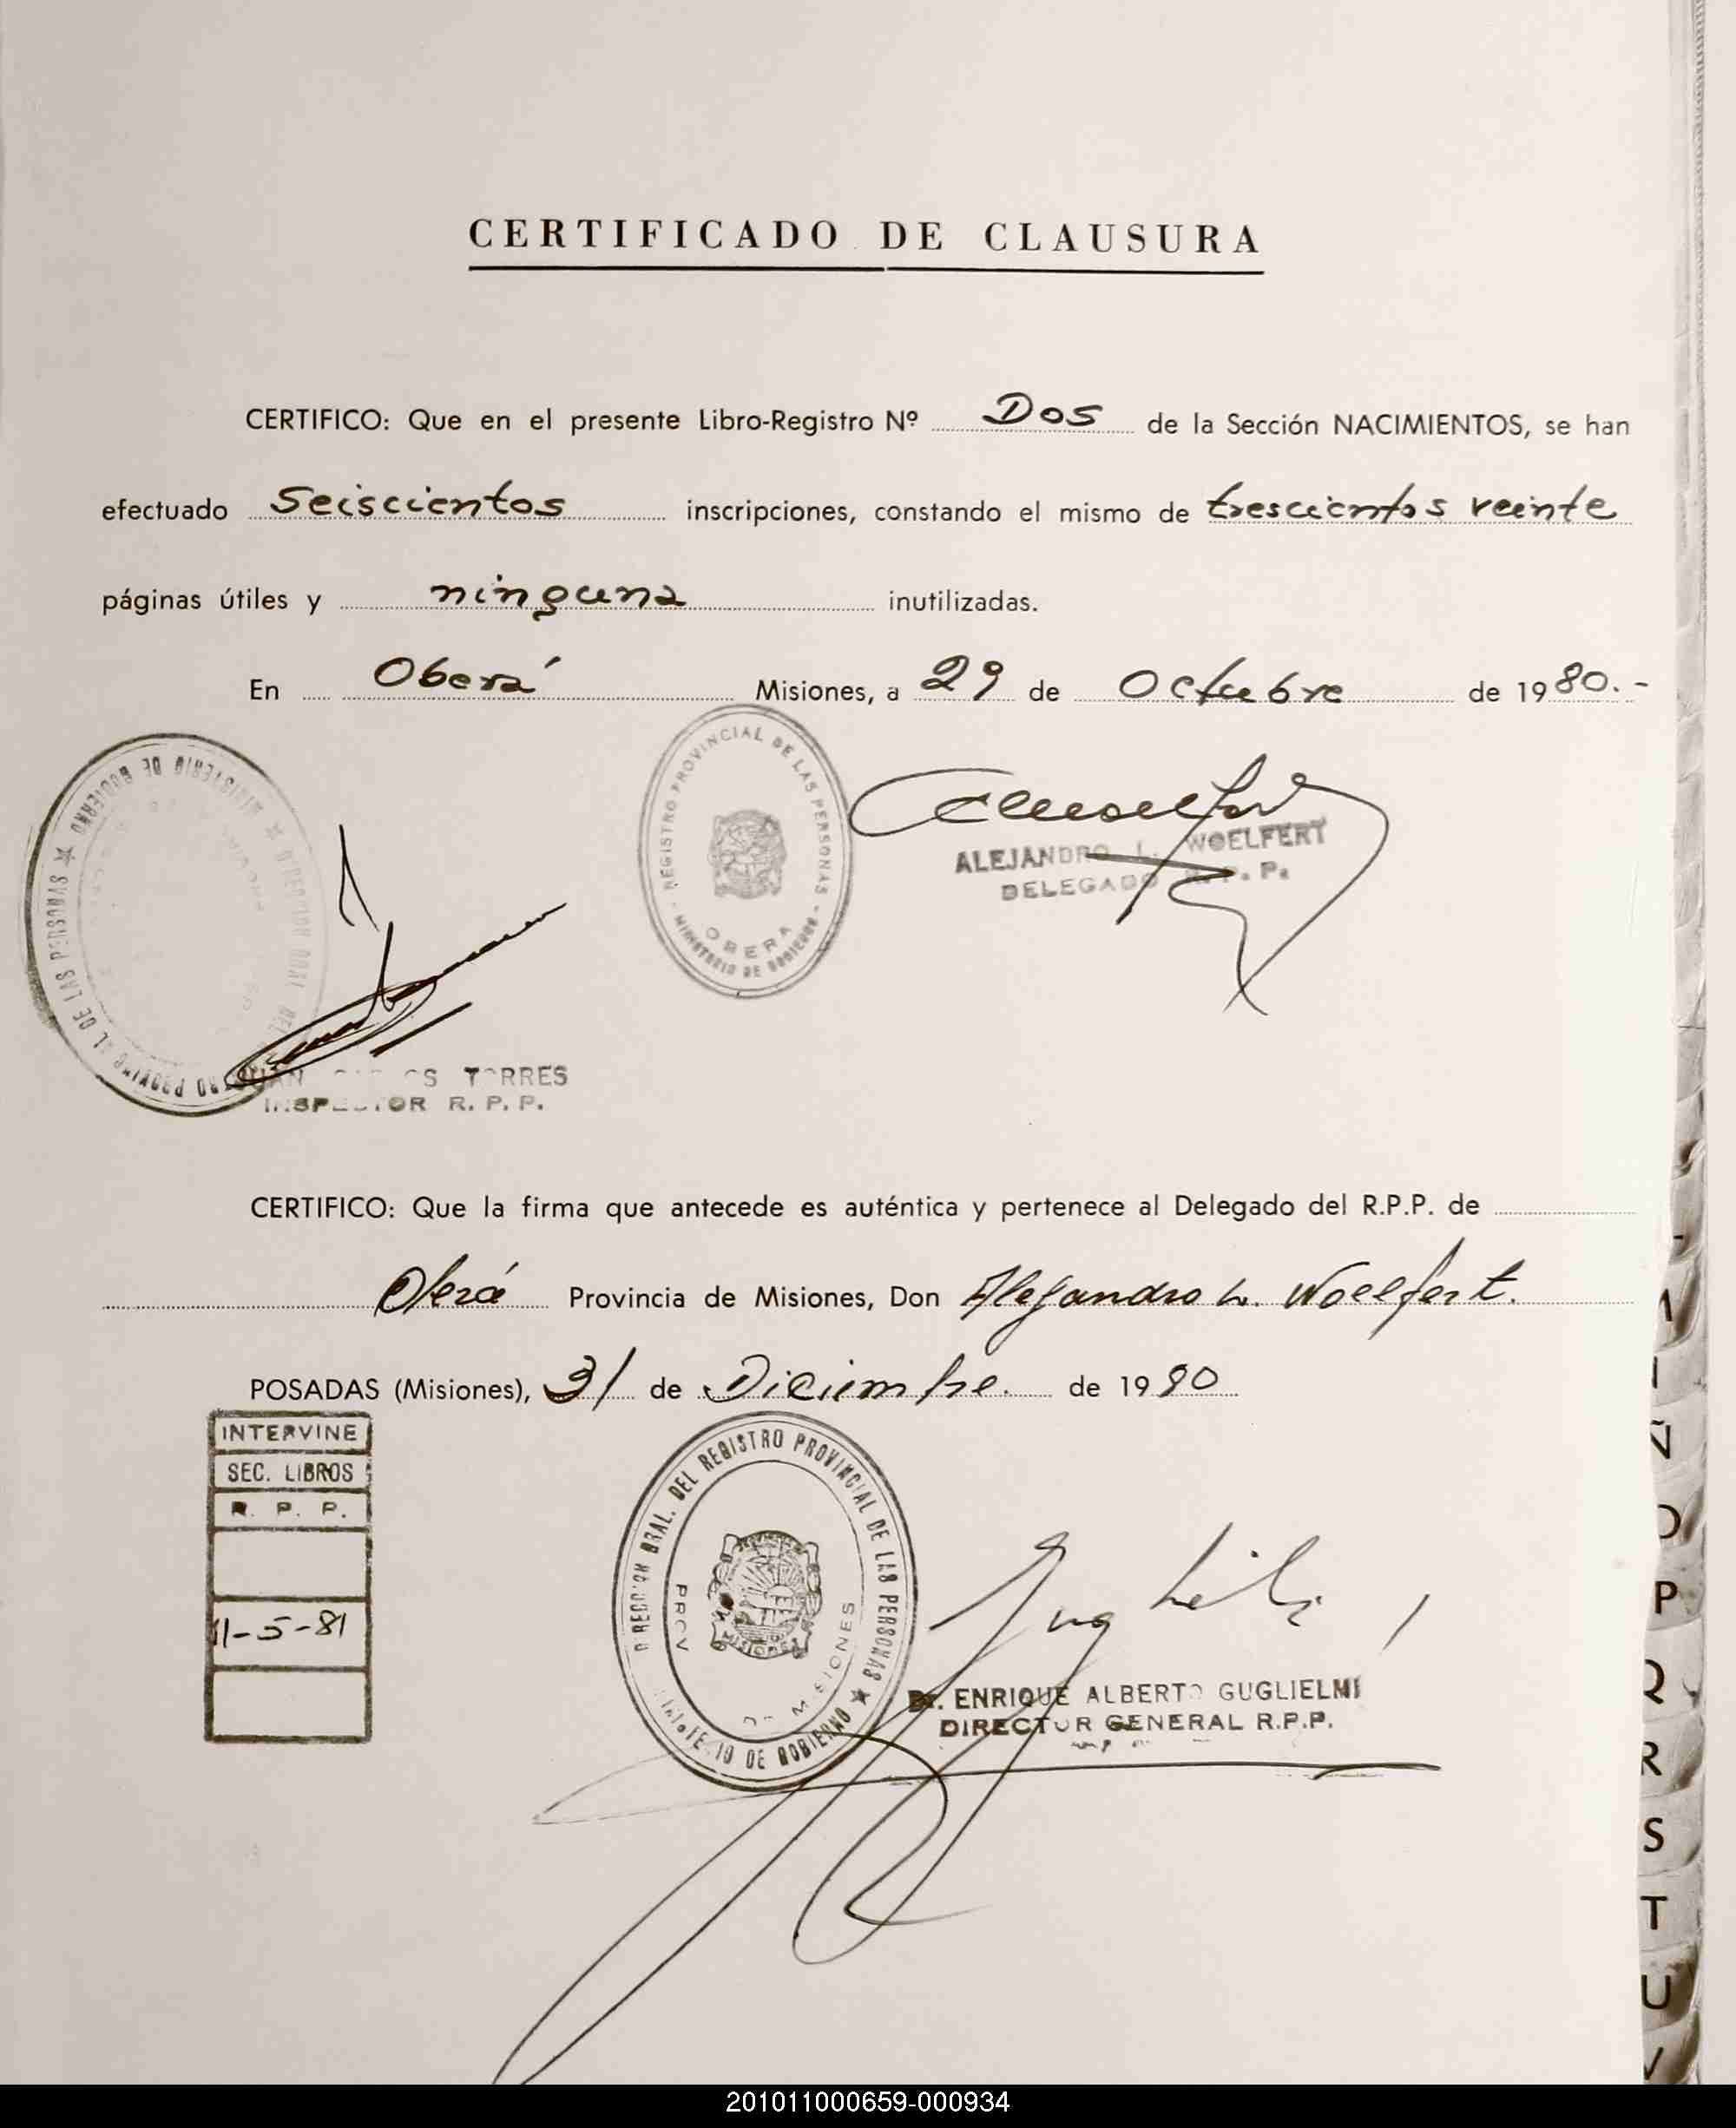 CERTIFICADO DE CLAUSURA
CERTIFICO: Que en el presente Libro-Registro Nº Dos de la Sección NACIMIENTOS, se han
efectuado Seiscientos inscripciones, constando el mismo de trescientos veinte
páginas útiles y ninguna inutilizadas.
En Oberá Misiones, a 29 de Octubre de 1980.-
MINISTERIO DE GOBIERNO
DE LAS PERSONAS
REGISTRO PROVINCIAL DE LAS PERSONAS
OBERA
MINISTERIO DE GOBIERNO
ALEJANDRO L. WOELFERT
DELEGADO R. P. P.
TORRES
INSPECTOR R. P. P.
CERTIFICO: Que la firma que antecede es auténtica y pertenece al Delegado del R.P.P. de
Oberá Provincia de Misiones, Don Alejandro L. Woelfert.
POSADAS (Misiones), 31 de Diciembre. de 1980
INTERVINE
SEC. LIBROS
R. P. P.
11-5-81
DIRECCION GRAL. DEL REGISTRO PROVINCIAL DE LAS PERSONAS
PROV DE MISIONES
MISIONES
MINISTERIO DE GOBIERNO
Dr. ENRIQUE ALBERTO GUGLIELMI
DIRECTOR GENERAL R.P.P.
Ñ
O
P
Q
R
S
T
U
V
201011000659-000934